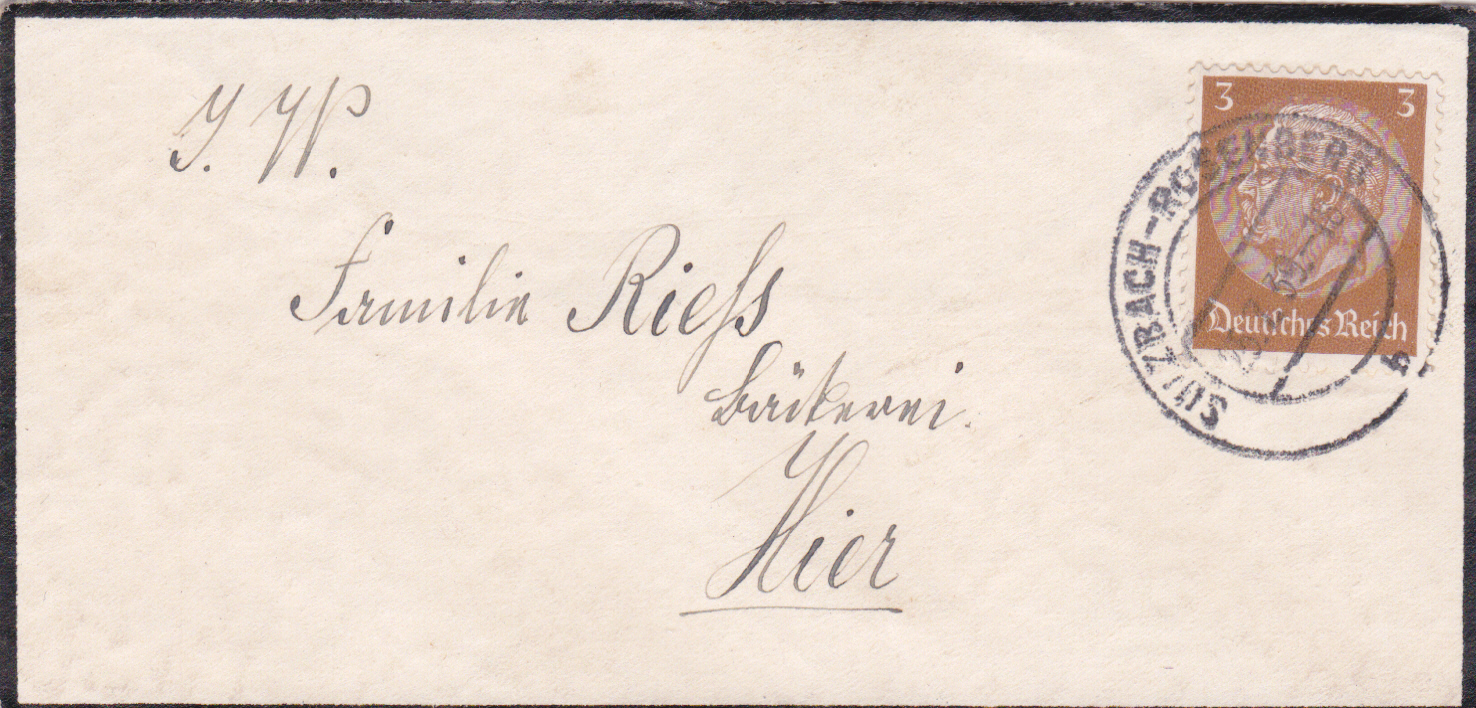 I. W.
Familie Rieß
Bäckerei.
Hier
3 3
Deutsches Reich
SULZBACH-ROSENBERG